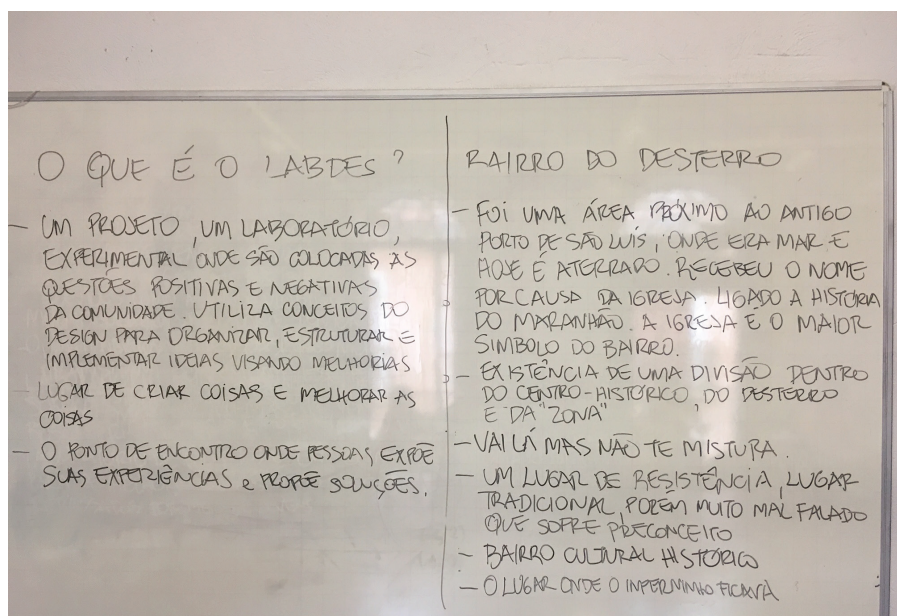 O QUE É O LABDES?
– UM PROJETO, UM LABORATÓRIO,
EXPERIMENTAL ONDE SÃO COLOCADAS AS
QUESTÕES POSITIVAS E NEGATIVAS
DA COMUNIDADE. UTILIZA CONCEITOS DO
DESIGN PARA ORGANIZAR, ESTRUTURAR E
IMPLEMENTAR IDEIAS VISANDO MELHORIAS
– LUGAR DE CRIAR COISAS E MELHORAR AS
COISAS
– O PONTO DE ENCONTRO ONDE PESSOAS EXPÕE
SUAS EXPERIÊNCIAS e PROPÕE SOLUÇÕES.
BAIRRO DO DESTERRO
– FOI UMA ÁREA PRÓXIMO AO ANTIGO
PORTO DE SÃO LUÍS, ONDE ERA MAR E
HOJE É ATERRADO. RECEBEU O NOME
POR CAUSA DA IGREJA. LIGADO A HISTÓRIA
DO MARANHÃO. A IGREJA É O MAIOR
SIMBOLO DO BAIRRO.
– EXISTÊNCIA DE UMA DIVISÃO DENTRO
DO CENTRO-HISTÓRICO, DO DESTERRO
E DA "ZONA"
– VAI LÁ MAS NÃO TE MISTURA.
– UM LUGAR DE RESISTÊNCIA, LUGAR
TRADICIONAL, PORÉM MUITO MAL FALADO
QUE SOFRE PRECONCEITO
– BAIRRO CULTURAL HISTÓRICO
– O LUGAR ONDE O INFERNINHO FICAVA